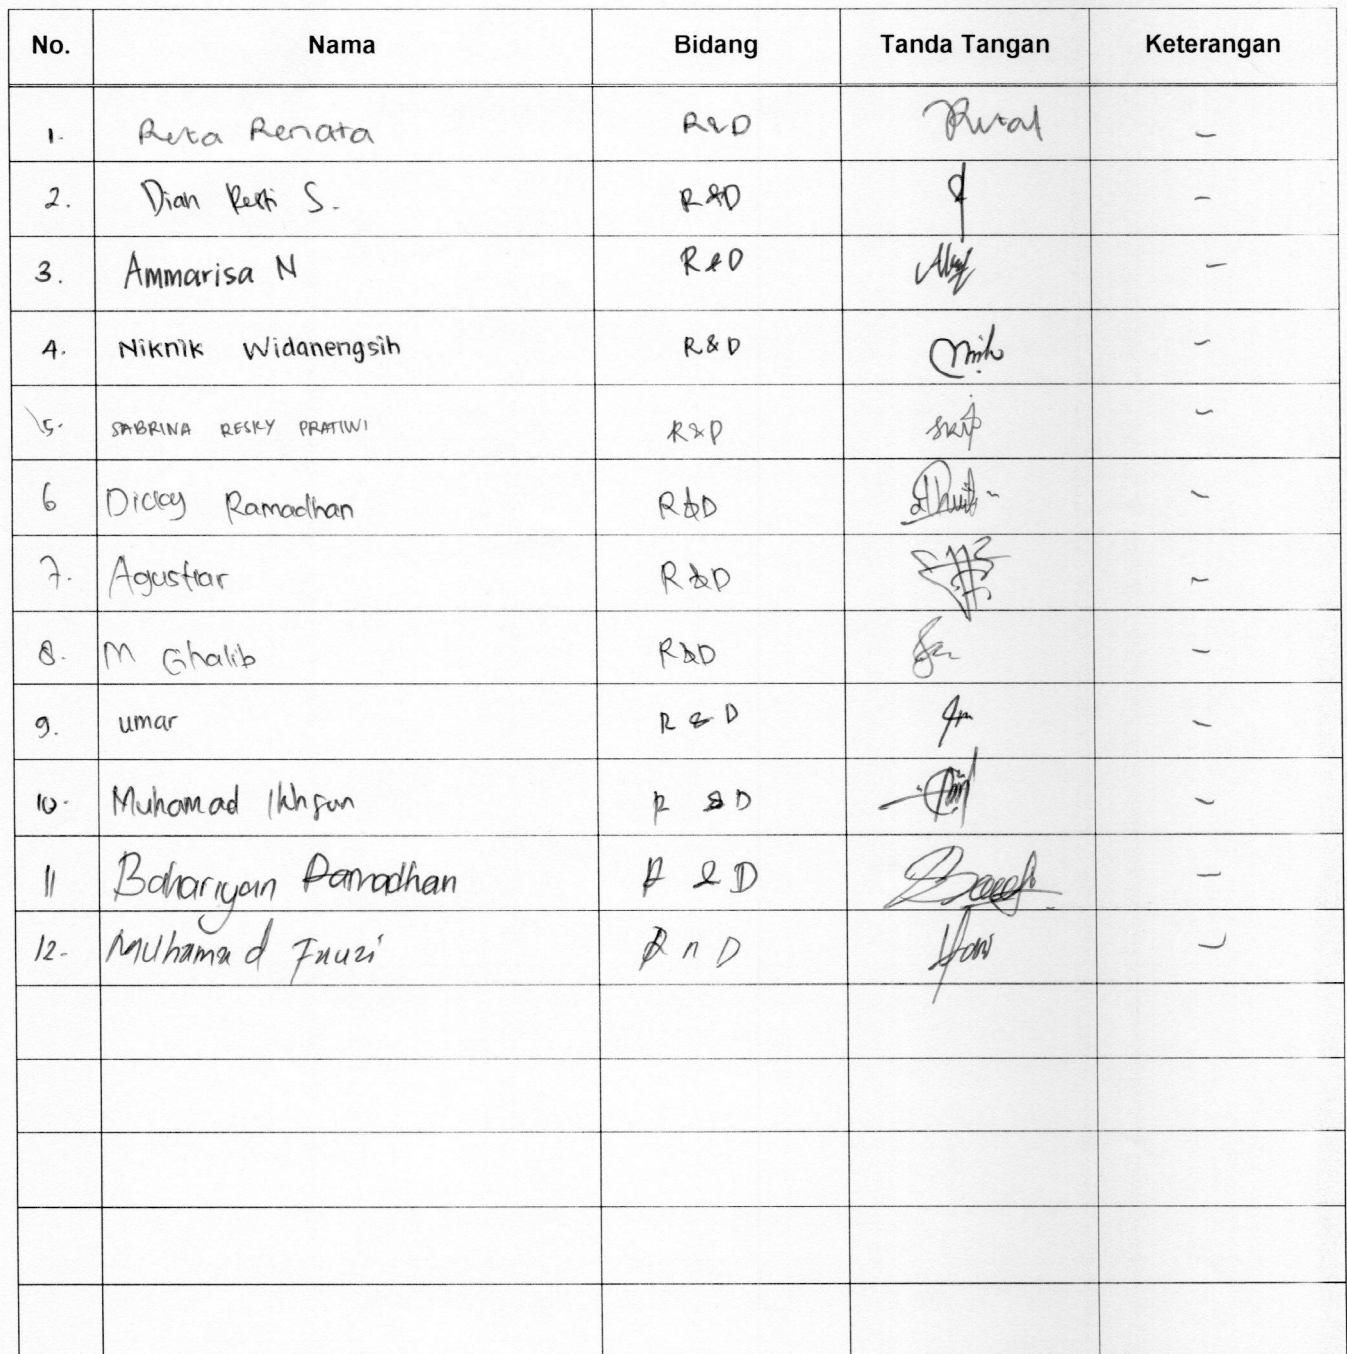 No. Nama Bidang Tanda Tangan Keterangan
1. Reta Renata R&D -
2. Diah Resti S. R&D -
3. Ammarisa N R&D -
4. Niknik Widanengsih R&D -
5. SABRINA RESKY PRATIWI R&D -
6 Dicky Ramadhan R&D -
7. Agustiar R&D -
8. M Ghalib R&D -
9. umar R & D -
10. Muhamad Ikhsan R & D -
11 Bahariyan Ramadhan R & D -
12. Muhamad Fauzi R n D -